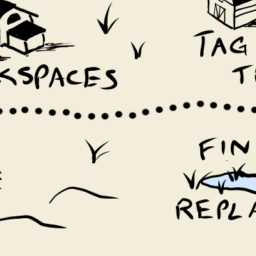 KSPACES
TAG
T
FIN
REPLA